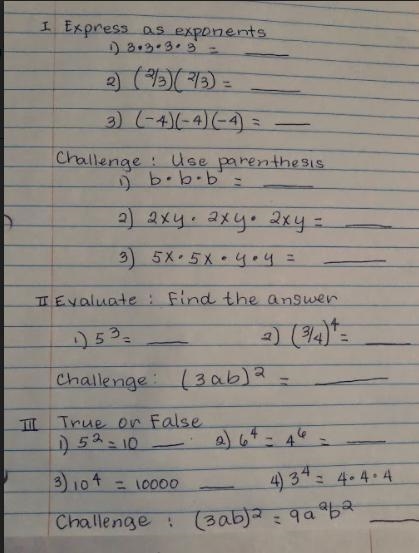 I Express as exponents
1) 3•3•3•3 = ____
2) (2/3)(2/3) = ____
3) (-4)(-4)(-4) = ____
Challenge : Use parenthesis
1) b•b•b = ____
2) 2xy • 2xy • 2xy = ____
3) 5x•5x•y•y = ____
II Evaluate : Find the answer
1) 5³ = ____ 2) (3/4)⁴ = ____
Challenge : (3ab)² = ____
III True or False
1) 5² = 10 ____ 2) 6⁴ = 4⁶ = ____
3) 10⁴ = 10000 ____ 4) 3⁴ = 4•4•4
Challenge : (3ab)² = 9a²b² ____